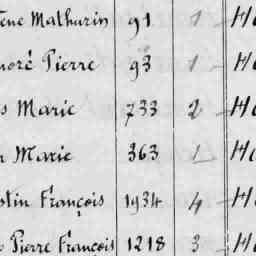 ène Mathurin 91 1 Ho
noré Pierre 93 1 Ho
s Marie 733 2 Ho
n Marie 363 1 Ho
stin François 1934 4 Ho
s Pierre François 1218 3 Ho